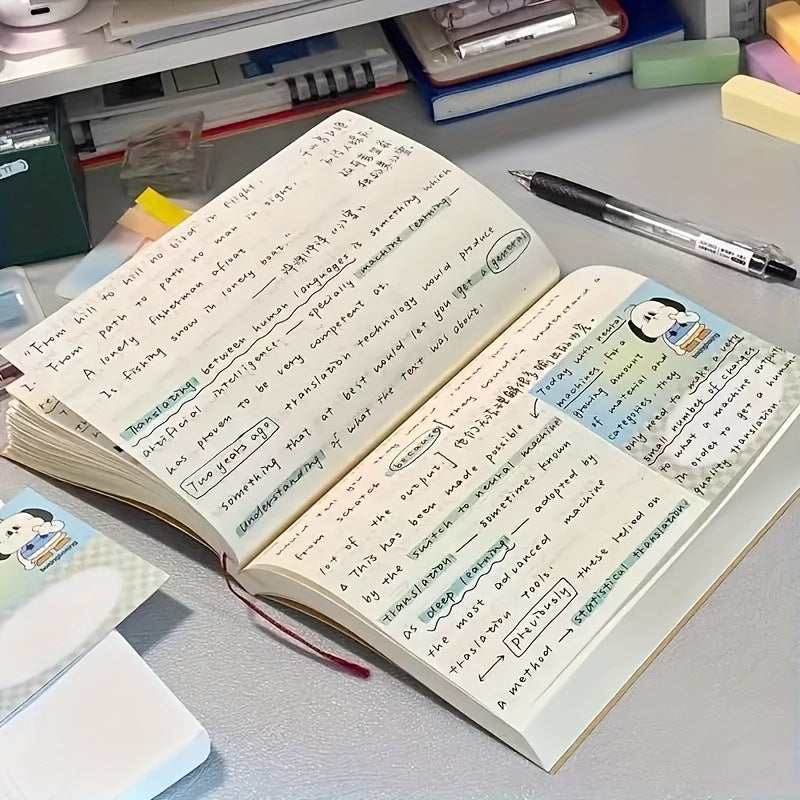 "From hill to hill no bird in flight.
From path to path no man in sight.
A lonely fisherman afloat
Is fishing snow in lonely boat."
千山鸟飞绝
万径人踪灭
孤舟蓑笠翁
独钓寒江雪
Translating between human languages is something which
artificial intelligence — specially machine learning —
has proven to be very competent at.
Two years ago translation technology would produce
something that at best would let you get a general
understanding of what the text was about.
from scratch
lot of the output.]
because
△ This has been made possible
by the switch to neural machine
translation — sometimes known
as deep learning — adopted by
the most advanced machine
traslation tools.
↔ Previously these relied on
a method → statistical translation
Today with neural
machines for a
growing amount
of material and
categories they
only need to make a very
small number of changes
to what a machine outputs
in order to get a human
quality translation